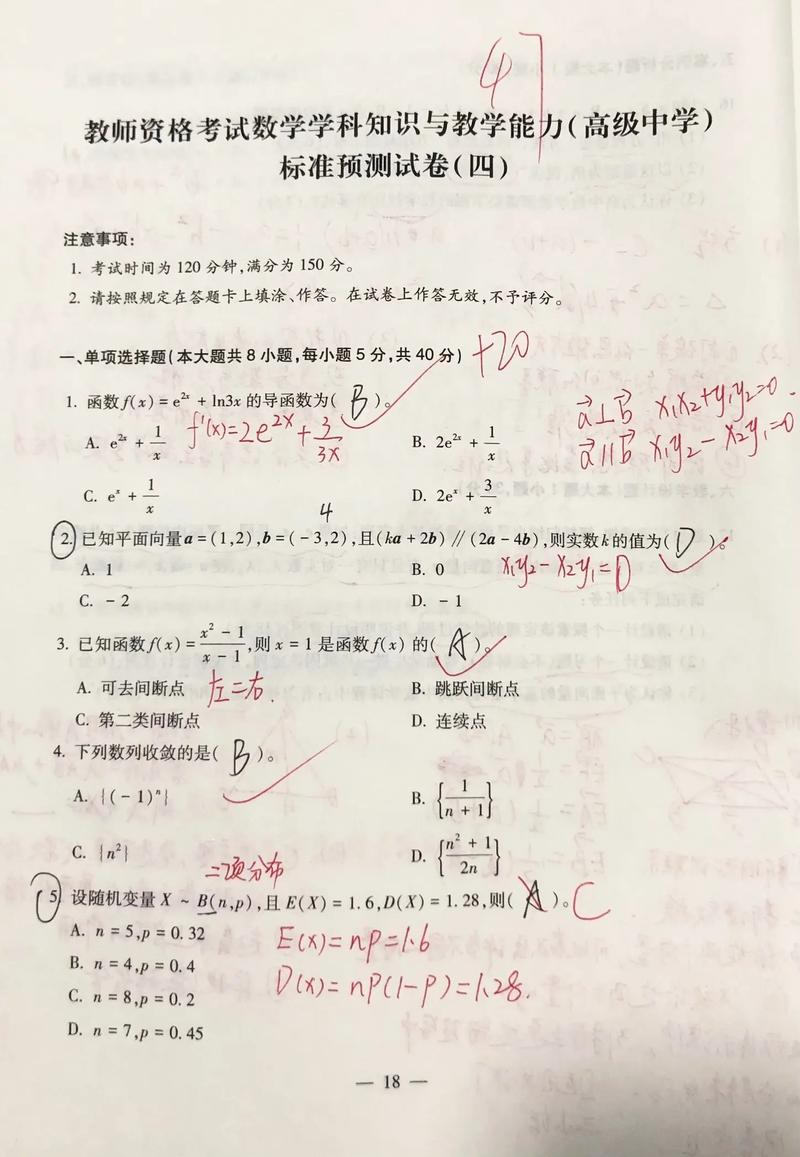 47
教师资格考试数学学科知识与教学能力(高级中学)
标准预测试卷(四)
注意事项:
1. 考试时间为 120 分钟,满分为 150 分。
2. 请按照规定在答题卡上填涂、作答。在试卷上作答无效,不予评分。
一、单项选择题(本大题共 8 小题,每小题 5 分,共 40 分) +20
1. 函数 f(x) = e^{2x} + ln3x 的导函数为( B )。
a⃗⊥b⃗ x₁x₂+y₁y₂=0.
a⃗∥b⃗ x₁y₂-x₂y₁=0
A. e^{2x} + 1/x f'(x)=2e^{2x}+3/3x B. 2e^{2x} + 1/x
C. e^x + 1/x D. 2e^x + 3/x
4
2. 已知平面向量 a = (1,2), b = (-3,2), 且(ka + 2b) ∥ (2a - 4b), 则实数 k 的值为( D )。
A. 1 B. 0 x₁y₂-x₂y₁=0
C. -2 D. -1
3. 已知函数 f(x) = (x² - 1)/(x - 1), 则 x = 1 是函数 f(x) 的( A )。
A. 可去间断点 左=右. B. 跳跃间断点
C. 第二类间断点 D. 连续点
4. 下列数列收敛的是( B )。
A. {(-1)^n} B. {1/(n + 1)}
C. {n²} D. {(n² + 1)/2n}
二项分布
5. 设随机变量 X ~ B(n,p), 且 E(X) = 1.6, D(X) = 1.28, 则( A )。 C
A. n = 5, p = 0.32 E(X)=np=1.6
B. n = 4, p = 0.4
C. n = 8, p = 0.2 D(X)=np(1-p)=1.28.
D. n = 7, p = 0.45
— 18 —